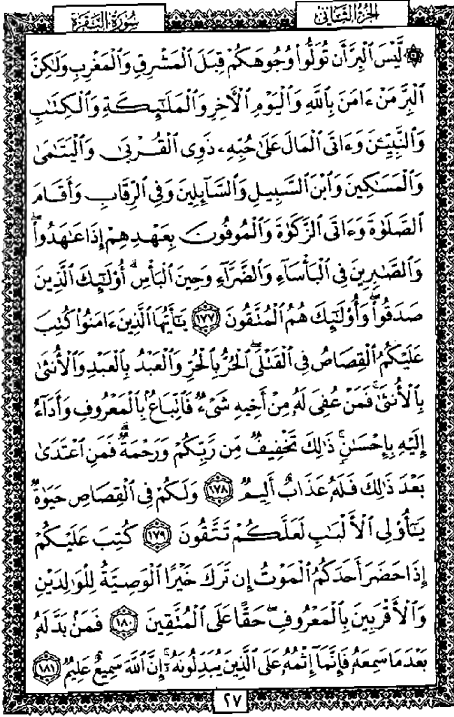 الجزء الثاني
سورة البقرة
۞ لَّيْسَ ٱلْبِرَّ أَن تُوَلُّوا۟ وُجُوهَكُمْ قِبَلَ ٱلْمَشْرِقِ وَٱلْمَغْرِبِ وَلَـٰكِنَّ
ٱلْبِرَّ مَنْ ءَامَنَ بِٱللَّهِ وَٱلْيَوْمِ ٱلْـَٔاخِرِ وَٱلْمَلَـٰٓئِكَةِ وَٱلْكِتَـٰبِ
وَٱلنَّبِيِّـۧنَ وَءَاتَى ٱلْمَالَ عَلَىٰ حُبِّهِۦ ذَوِى ٱلْقُرْبَىٰ وَٱلْيَتَـٰمَىٰ
وَٱلْمَسَـٰكِينَ وَٱبْنَ ٱلسَّبِيلِ وَٱلسَّآئِلِينَ وَفِى ٱلرِّقَابِ وَأَقَامَ
ٱلصَّلَوٰةَ وَءَاتَى ٱلزَّكَوٰةَ وَٱلْمُوفُونَ بِعَهْدِهِمْ إِذَا عَـٰهَدُوا۟ۖ
وَٱلصَّـٰبِرِينَ فِى ٱلْبَأْسَآءِ وَٱلضَّرَّآءِ وَحِينَ ٱلْبَأْسِۗ أُو۟لَـٰٓئِكَ ٱلَّذِينَ
صَدَقُوا۟ۖ وَأُو۟لَـٰٓئِكَ هُمُ ٱلْمُتَّقُونَ ١٧٧ يَـٰٓأَيُّهَا ٱلَّذِينَ ءَامَنُوا۟ كُتِبَ
عَلَيْكُمُ ٱلْقِصَاصُ فِى ٱلْقَتْلَىۖ ٱلْحُرُّ بِٱلْحُرِّ وَٱلْعَبْدُ بِٱلْعَبْدِ وَٱلْأُنثَىٰ
بِٱلْأُنثَىٰۚ فَمَنْ عُفِىَ لَهُۥ مِنْ أَخِيهِ شَىْءٌ فَٱتِّبَاعٌۢ بِٱلْمَعْرُوفِ وَأَدَآءٌ
إِلَيْهِ بِإِحْسَـٰنٍۗ ذَٰلِكَ تَخْفِيفٌ مِّن رَّبِّكُمْ وَرَحْمَةٌۗ فَمَنِ ٱعْتَدَىٰ
بَعْدَ ذَٰلِكَ فَلَهُۥ عَذَابٌ أَلِيمٌ ١٧٨ وَلَكُمْ فِى ٱلْقِصَاصِ حَيَوٰةٌ
يَـٰٓأُو۟لِى ٱلْأَلْبَـٰبِ لَعَلَّكُمْ تَتَّقُونَ ١٧٩ كُتِبَ عَلَيْكُمْ
إِذَا حَضَرَ أَحَدَكُمُ ٱلْمَوْتُ إِن تَرَكَ خَيْرًا ٱلْوَصِيَّةُ لِلْوَٰلِدَيْنِ
وَٱلْأَقْرَبِينَ بِٱلْمَعْرُوفِۖ حَقًّا عَلَى ٱلْمُتَّقِينَ ١٨٠ فَمَنۢ بَدَّلَهُۥ
بَعْدَمَا سَمِعَهُۥ فَإِنَّمَآ إِثْمُهُۥ عَلَى ٱلَّذِينَ يُبَدِّلُونَهُۥٓۚ إِنَّ ٱللَّهَ سَمِيعٌ عَلِيمٌ ١٨١
٢٧